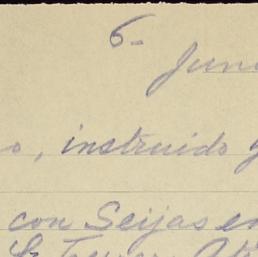 6-
Jun
o, instruido y
con Seijas en